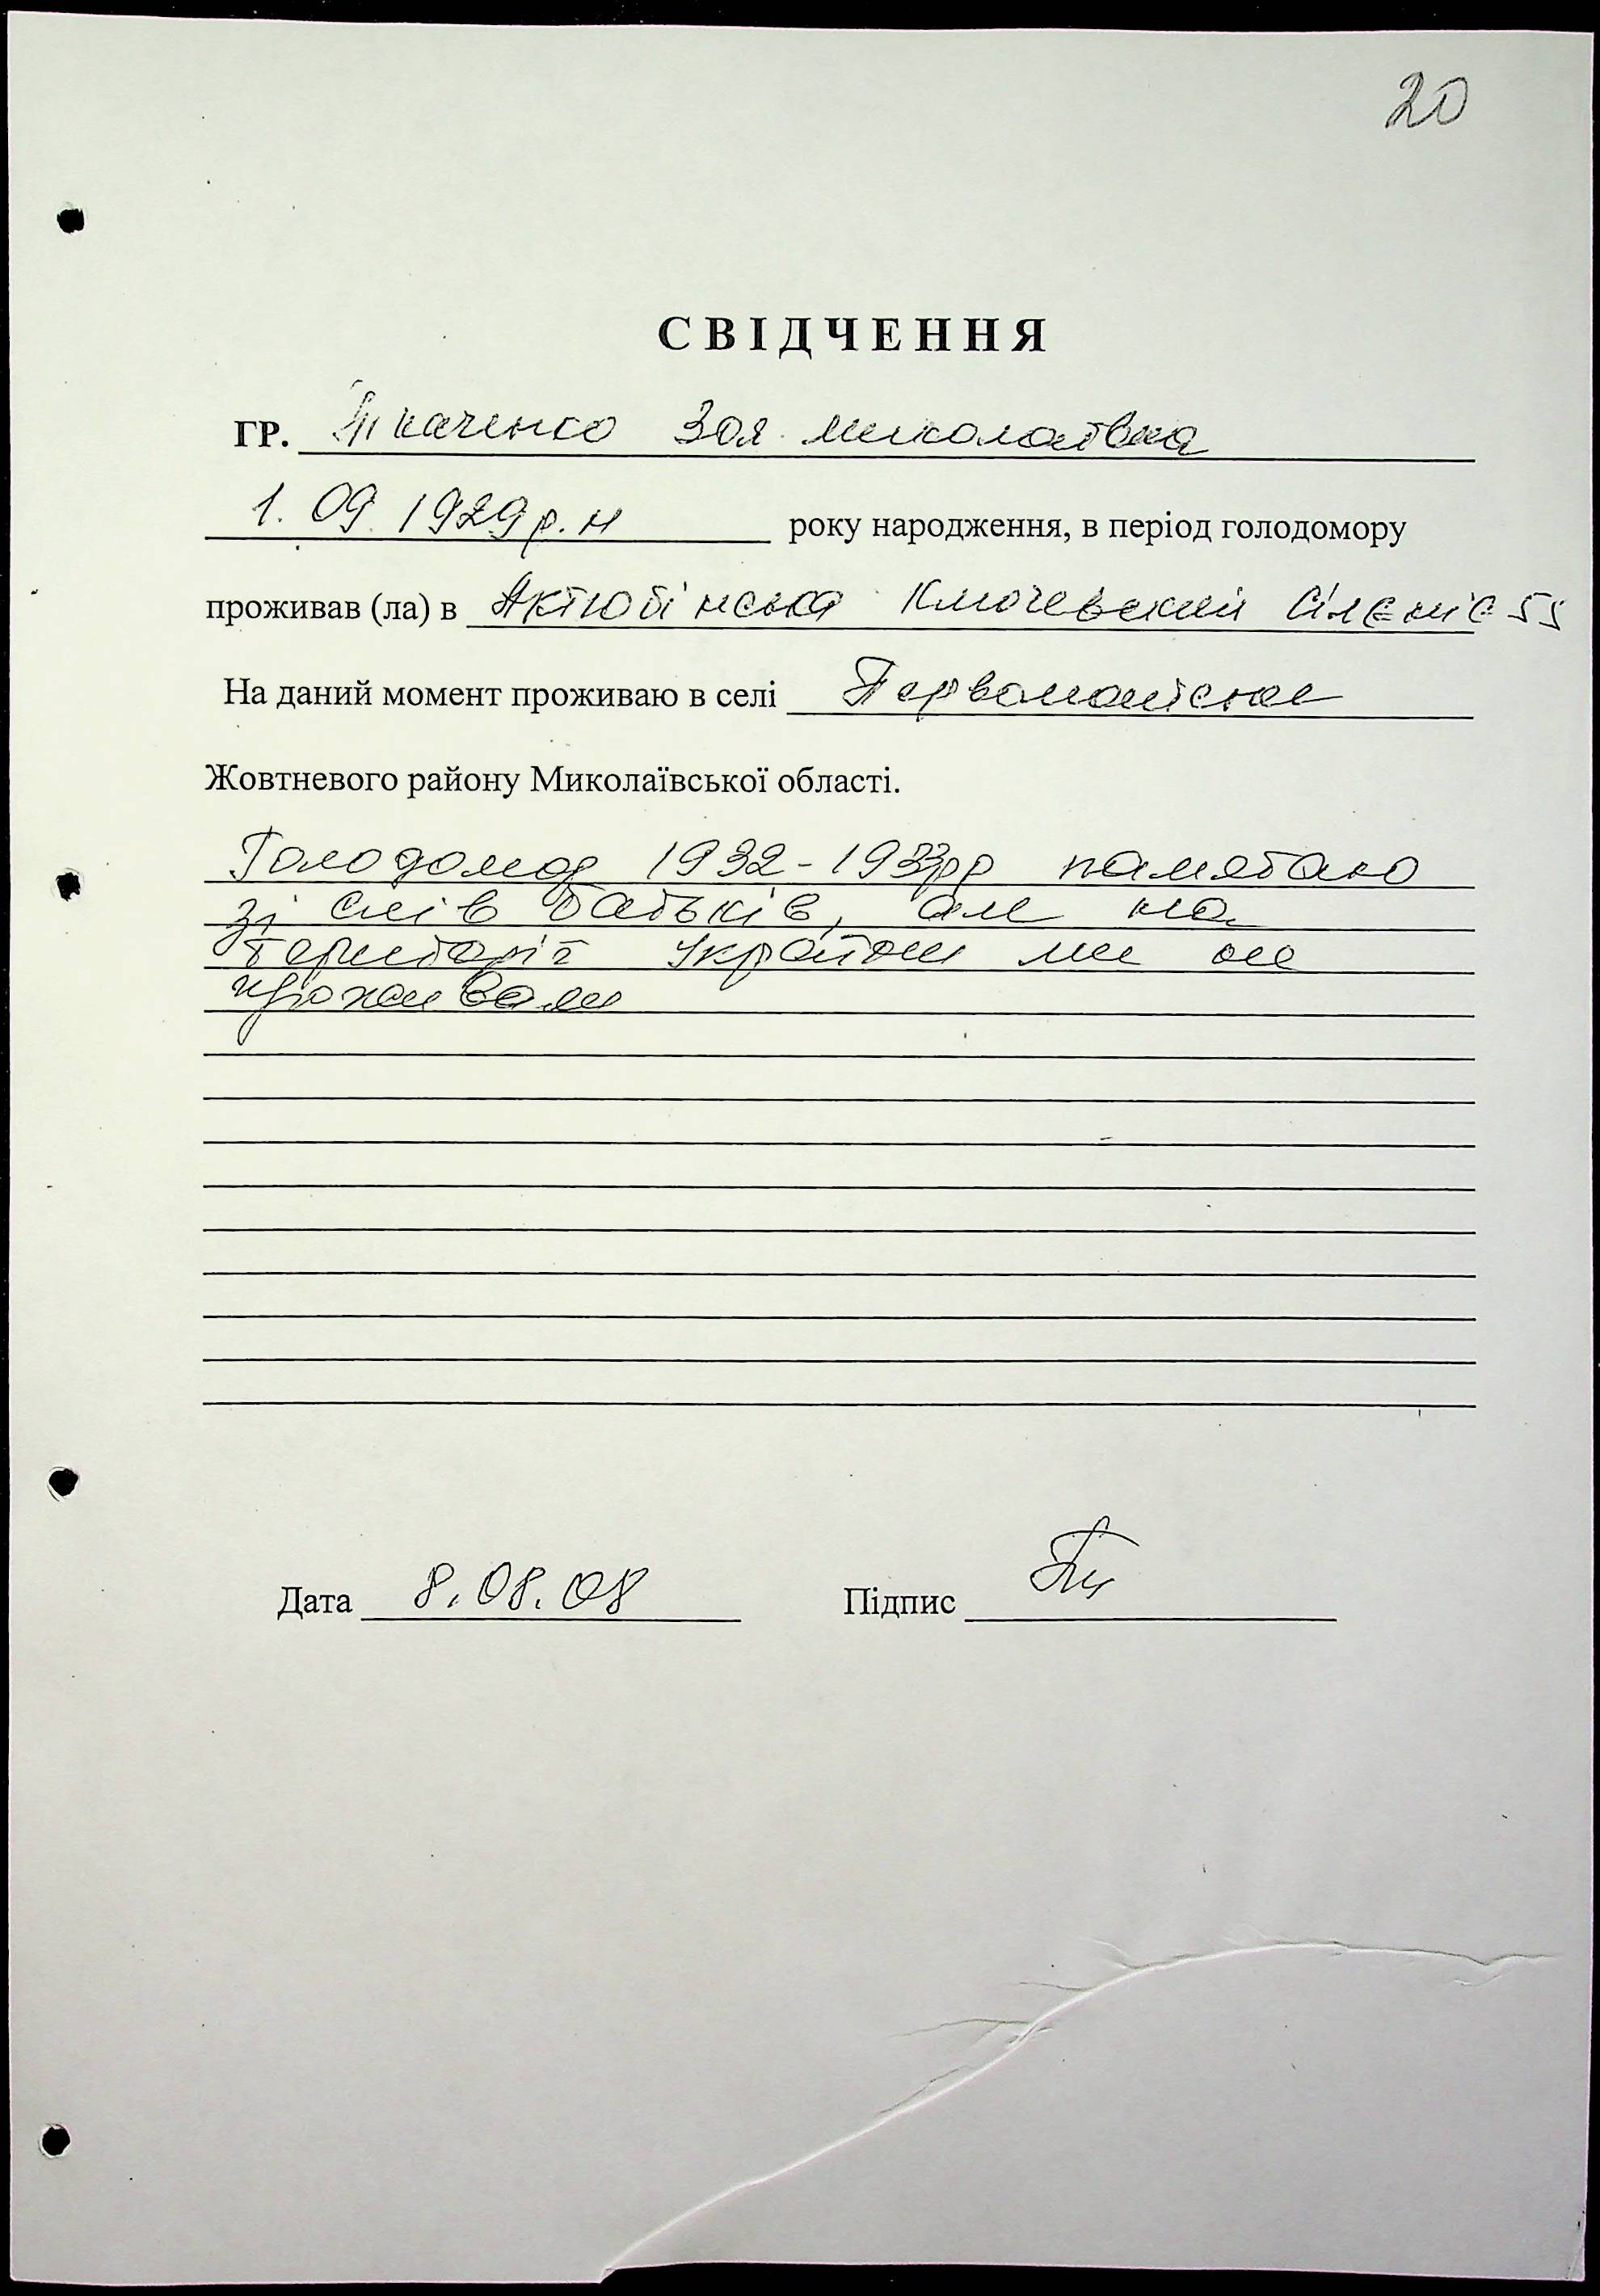 20
СВІДЧЕННЯ
ГР. Ткаченко Зоя Миколаївна
1. 09. 1929 р.н року народження, в період голодомору
проживав (ла) в Актюбінська Ключевский 55
На даний момент проживаю в селі Первомайське
Жовтневого району Миколаївської області.
Голодомор 1932-1933рр памятаю
зі слів батьків, але на
території України ми не
проживали
Дата 8.08.08 Підпис